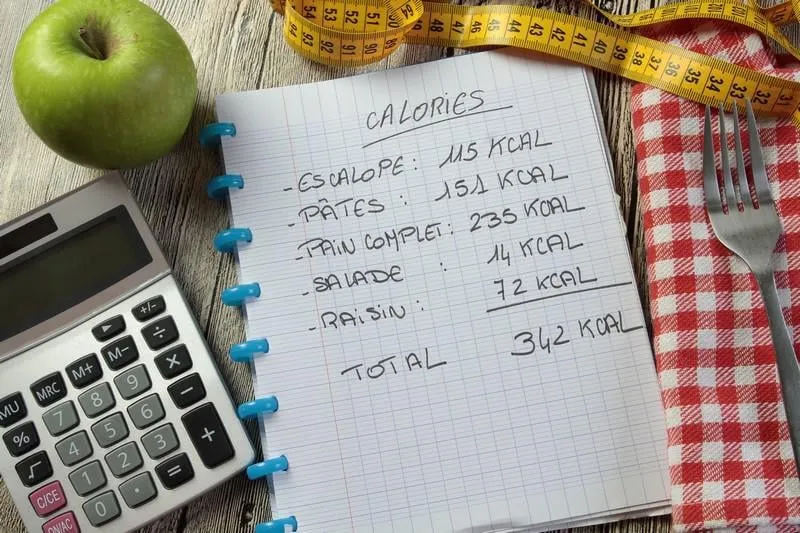 CALORIES
- ESCALOPE : 115 KCAL
- PÂTES : 151 KCAL
- PAIN COMPLET : 235 KCAL
- SALADE : 14 KCAL
- RAISIN : 72 KCAL
TOTAL 342 KCAL
54 53 52 51 50 48 47 46 45 44 43 42 41 40 39 38 37 36 35 34 33 32 31
94 93 92 91 90 89
+/-
▶ ÷
MU MRC M+ M− ×
% 7 8 9 −
√ 4 5 6 +
C/CE 1 2 3 =
ON/AC 0 ·